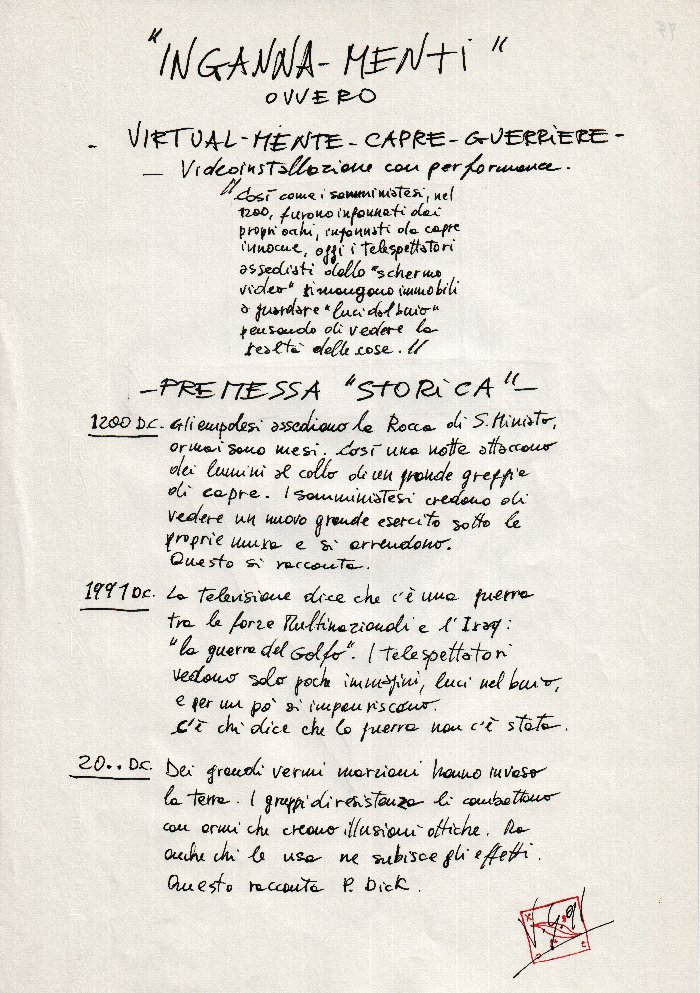 "INGANNA-MENTI"
OVVERO
- VIRTUAL-MENTE-CAPRE-GUERRIERE-
— Videoinstallazione con performance.
"Così come i samministesi, nel
1200, furono ingannati dai
propri occhi, ingannati da capre
innocue, oggi i telespettatori
assediati dallo "schermo
video" rimangono immobili
a guardare "luci dal buio"
pensando di vedere la
realtà delle cose."
-PREMESSA "STORICA"-
1200 D.C. Gli empolesi assediano la Rocca di S. Miniato,
ormai sono mesi. Così una notte attaccano
dei lumini al collo di un grande greggie
di capre. I samministesi credono di
vedere un nuovo grande esercito sotto le
proprie mura e si arrendono.
Questo si racconta.
1991 D.C. La televisione dice che c'è una guerra
tra le forze Multinazionali e l'Iraq:
"la guerra del Golfo". I telespettatori
vedono solo poche immagini, luci nel buio,
e per un po' si impauriscono.
C'è chi dice che la guerra non c'è stata.
20.. D.C. Dei grandi vermi marziani hanno invaso
la terra. I gruppi di resistenza li combattono
con armi che creano illusioni ottiche. Ma
anche chi le usa ne subisce gli effetti.
Questo racconta P. Dick.